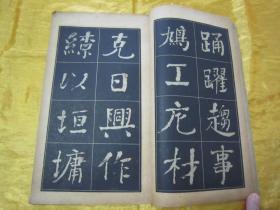 踊躍趨事
鳩工庀材
克日興作
繚以垣墉